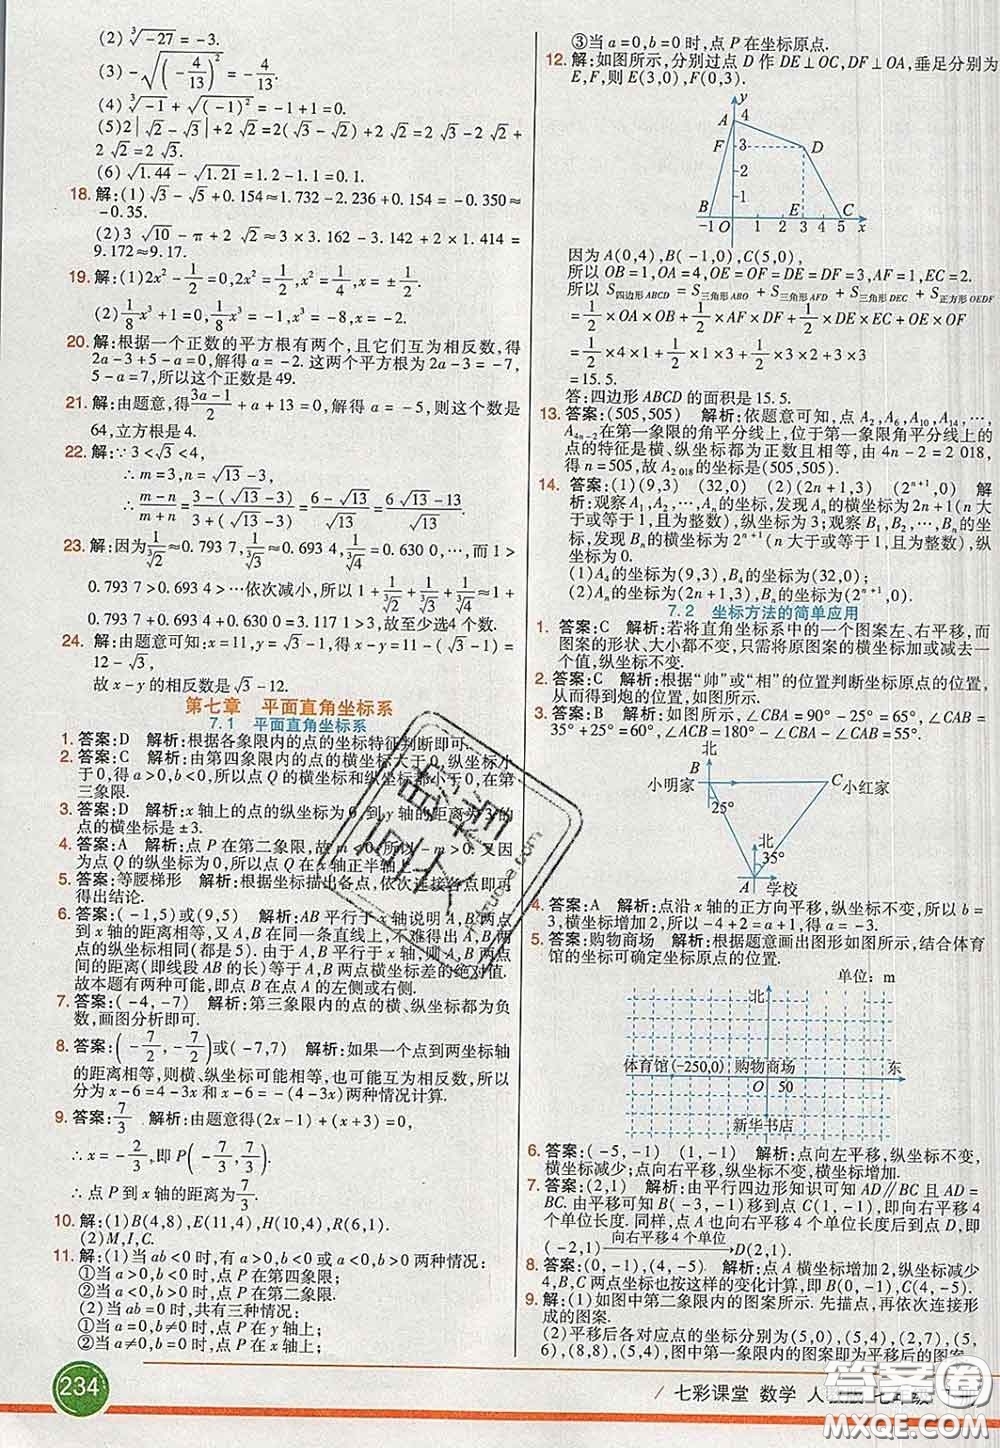 (2) ∛-27 = -3.
(3) -√(-4/13)² = -4/13.
(4) ∛-1 + √(-1)² = -1+1=0.
(5)2|√2-√3|+2√2=2(√3-√2)+2√2=2√3-2√2+
2√2=2√3.
(6) √1.44 - √1.21 = 1.2-1.1=0.1.
18. 解:(1)√3-√5+0.154≈1.732-2.236+0.154=-0.350≈
-0.35.
(2)3√10-π+2√2≈3×3.162-3.142+2×1.414=
9.172≈9.17.
19. 解:(1)2x²-1/2=0,2x²=1/2,x²=1/4,x=±1/2.
(2)1/8x³+1=0,1/8x³=-1,x³=-8,x=-2.
20. 解:根据一个正数的平方根有两个,且它们互为相反数,得
2a-3+5-a=0,解得a=-2.这两个平方根为2a-3=-7,
5-a=7,所以这个正数是49.
21. 解:由题意,得(3a-1)/2+a+13=0,解得a=-5,则这个数是
64,立方根是4.
22. 解:∵3<√13<4,
∴m=3,n=√13-3,
∴(m-n)/(m+n)=(3-(√13-3))/(3+(√13-3))=(6-√13)/√13=(6√13-13)/13.
23. 解:因为1/∛2≈0.7937,1/∛3≈0.6934,1/∛4≈0.6300,…,而1>
0.7937>0.6934>…依次减小,所以1+1/∛2+1/∛3+1/∛4≈1+
0.7937+0.6934+0.6300=3.1171>3,故至少选4个数.
24. 解:由题意可知:x=11,y=√3-1,得x-y=11-(√3-1)=
12-√3,
故x-y的相反数是√3-12.
第七章 平面直角坐标系
7.1 平面直角坐标系
1. 答案:D 解析:根据各象限内的点的坐标特征判断即可.
2. 答案:C 解析:由第四象限内的点的横坐标大于0,纵坐标小
于0,得a>0,b<0,所以点Q的横坐标和纵坐标都小于0,在第
三象限.
3. 答案:D 解析:x轴上的点的纵坐标为0,到y轴的距离为3的
点的横坐标是±3.
4. 答案:A 解析:点P在第二象限,故m<0,所以-m>0.又因
为点Q的纵坐标为0,所以点Q在x轴正半轴上.
5. 答案:等腰梯形 解析:根据坐标描出各点,依次连接各点可
得出结论.
6. 答案:(-1,5)或(9,5) 解析:AB平行于x轴说明A,B两点的
纵坐标相等,又A,B在同一条直线上,则A,B两点到x轴的
距离(纵坐标)相同(都是5).由于AB平行于x轴,则A,B两点
间的距离(即线段AB长)等于A,B两点横坐标差的绝对值.
故本题有两种可能,即点B在点A的左侧或右侧.
7. 答案:(-4,-7) 解析:第三象限内的点的横、纵坐标都为负
数,画图分析即可.
8. 答案:(-7/2,-7/2)或(-7,7) 解析:如果一个点到两坐标轴
的距离相等,则横、纵坐标可能相等,也可能互为相反数,所以
分为x-6=4-3x和x-6=-(4-3x)两种情况计算.
9. 答案:7/3 解析:由题意得(2x-1)+(x+3)=0,
∴x=-2/3,即P(-7/3,7/3),
∴点P到x轴的距离为7/3.
10. 解:(1)B(4,8),E(11,4),H(10,4),R(6,1).
(2)M,I,C.
11. 解:(1)当ab<0时,有a>0,b<0或a<0,b>0两种情况:
①当a>0,b<0时,点P在第四象限;
②当a<0,b>0时,点P在第二象限.
(2)当ab=0时,共有三种情况:
①当a=0,b≠0时,点P在y轴上;
②当a≠0,b=0时,点P在x轴上;
③当a=0,b=0时,点P在坐标原点.
12. 解:如图所示,分别过点D作DE⊥OC,DF⊥OA,垂足分别为
E,F,则E(3,0),F(0,3).
y
A 4
F 3 D
2
1
B E C
-1 O 1 2 3 4 5 x
因为A(0,4),B(-1,0),C(5,0),
所以OB=1,OA=4,OE=OF=DE=DF=3,AF=1,EC=2.
所以S四边形ABCD=S三角形ABO+S三角形AFD+S三角形DEC+S正方形OEDF
=1/2×OA×OB+1/2×AF×DF+1/2×DE×EC+OE×OF
=1/2×4×1+1/2×1×3+1/2×3×2+3×3
=15.5.
答:四边形ABCD的面积是15.5.
13. 答案:(505,505) 解析:依题意可知,点A2,A6,A10,A14,…,
A4n-2在第一象限的角平分线上,位于第一象限角平分线上的
点的特征是横、纵坐标都为正数且相等,由4n-2=2 018,
得n=505,故A2 018的坐标是(505,505).
14. 答案:(1)(9,3) (32,0) (2)(2n+1,3) (2ⁿ⁺¹,0) 解
析:观察A1,A2,…,An的坐标,发现An的横坐标为2n+1(n大
于或等于1,且为整数),纵坐标为3;观察B1,B2,…,Bn的坐
标,发现Bn的横坐标为2ⁿ⁺¹(n大于或等于1,且为整数),纵坐
标为0.
(1)A4的坐标为(9,3),B4的坐标为(32,0);
(2)An的坐标为(2n+1,3),Bn的坐标为(2ⁿ⁺¹,0).
7.2 坐标方法的简单应用
1. 答案:C 解析:若将直角坐标系中的一个图案左、右平移,而
图案的形状、大小都不变,只需将原图案的横坐标加或减去
一个值,纵坐标不变.
2. 答案:C 解析:根据“帅”或“相”的位置判断坐标原点的位置,
从而得到炮的位置,如图所示.
3. 答案:B 解析:如图所示,∠CBA=90°-25°=65°,∠CAB=
35°+25°=60°,∠ACB=180°-∠CBA-∠CAB=55°.
北
B C
小明家 小红家
25°
北
35°
A 学校
4. 答案:A 解析:点沿x轴的正方向平移,纵坐标不变,所以b=
3,横坐标增加2,所以-1+2=a+1+...,得a=-3.
5. 答案:购物商场 解析:根据题意画出图形如图所示,结合体育
馆的坐标可确定坐标原点的位置.
单位:m
北
体育馆(-250,0) 购物商场 东
O 50
新华书店
6. 答案:(-5,-1) (1,-1) 解析:点向左平移,纵坐标不变,
横坐标减少;点向右平移,纵坐标不变,横坐标增加.
7. 答案:(2,1) 解析:由平行四边形知识可知AD∥BC且AD=
BC.由图可知点B(-3,-1)移到点C(1,-1),即向右平移4
个单位长度.同样,点A也向右平移4个单位长度后到点D,即
(-2,1) 向右平移4个单位长度 D(2,1).
8. 答案:(0,-1),(4,-5) 解析:点A横坐标增加2,纵坐标减少
4,B,C两点坐标也按这样的变化计算,即B(0,-1),C(4,-5).
9. 解:(1)如图中第二象限内的图案所示.先描点,再依次连接形
成的图案.
(2)平移后各对应点的坐标分别为(5,0),(5,4),(2,7),(5,
6),(8,8),(5,4),图中第一象限内的图案即为平移后的图案.
234
七彩课堂 数学 人教版 七年级
答案圈
MXQE.COM